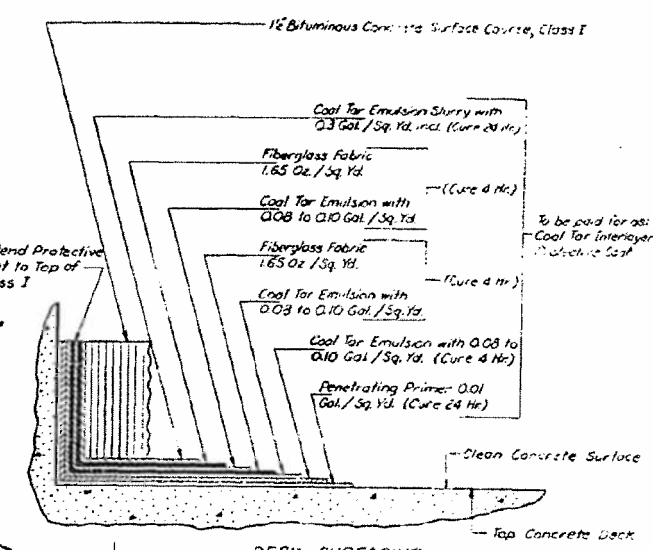 1½" Bituminous Concrete Surface Course, Class I
Coal Tar Emulsion Slurry with
0.3 Gal./Sq. Yd. incl. (Cure 24 Hr.)
Fiberglass Fabric
1.65 Oz./Sq. Yd.
(Cure 4 Hr.)
Coal Tar Emulsion with
0.08 to 0.10 Gal./Sq. Yd.
Fiberglass Fabric
1.65 Oz./Sq. Yd.
(Cure 4 Hr.)
Coal Tar Emulsion with
0.08 to 0.10 Gal./Sq. Yd.
Coal Tar Emulsion with 0.08 to
0.10 Gal./Sq. Yd. (Cure 4 Hr.)
Penetrating Primer 0.01
Gal./Sq. Yd. (Cure 24 Hr.)
To be paid for as:
Coal Tar Interlayer
Protective Coat
end Protective
t to Top of
ss I
Clean Concrete Surface
Top Concrete Deck